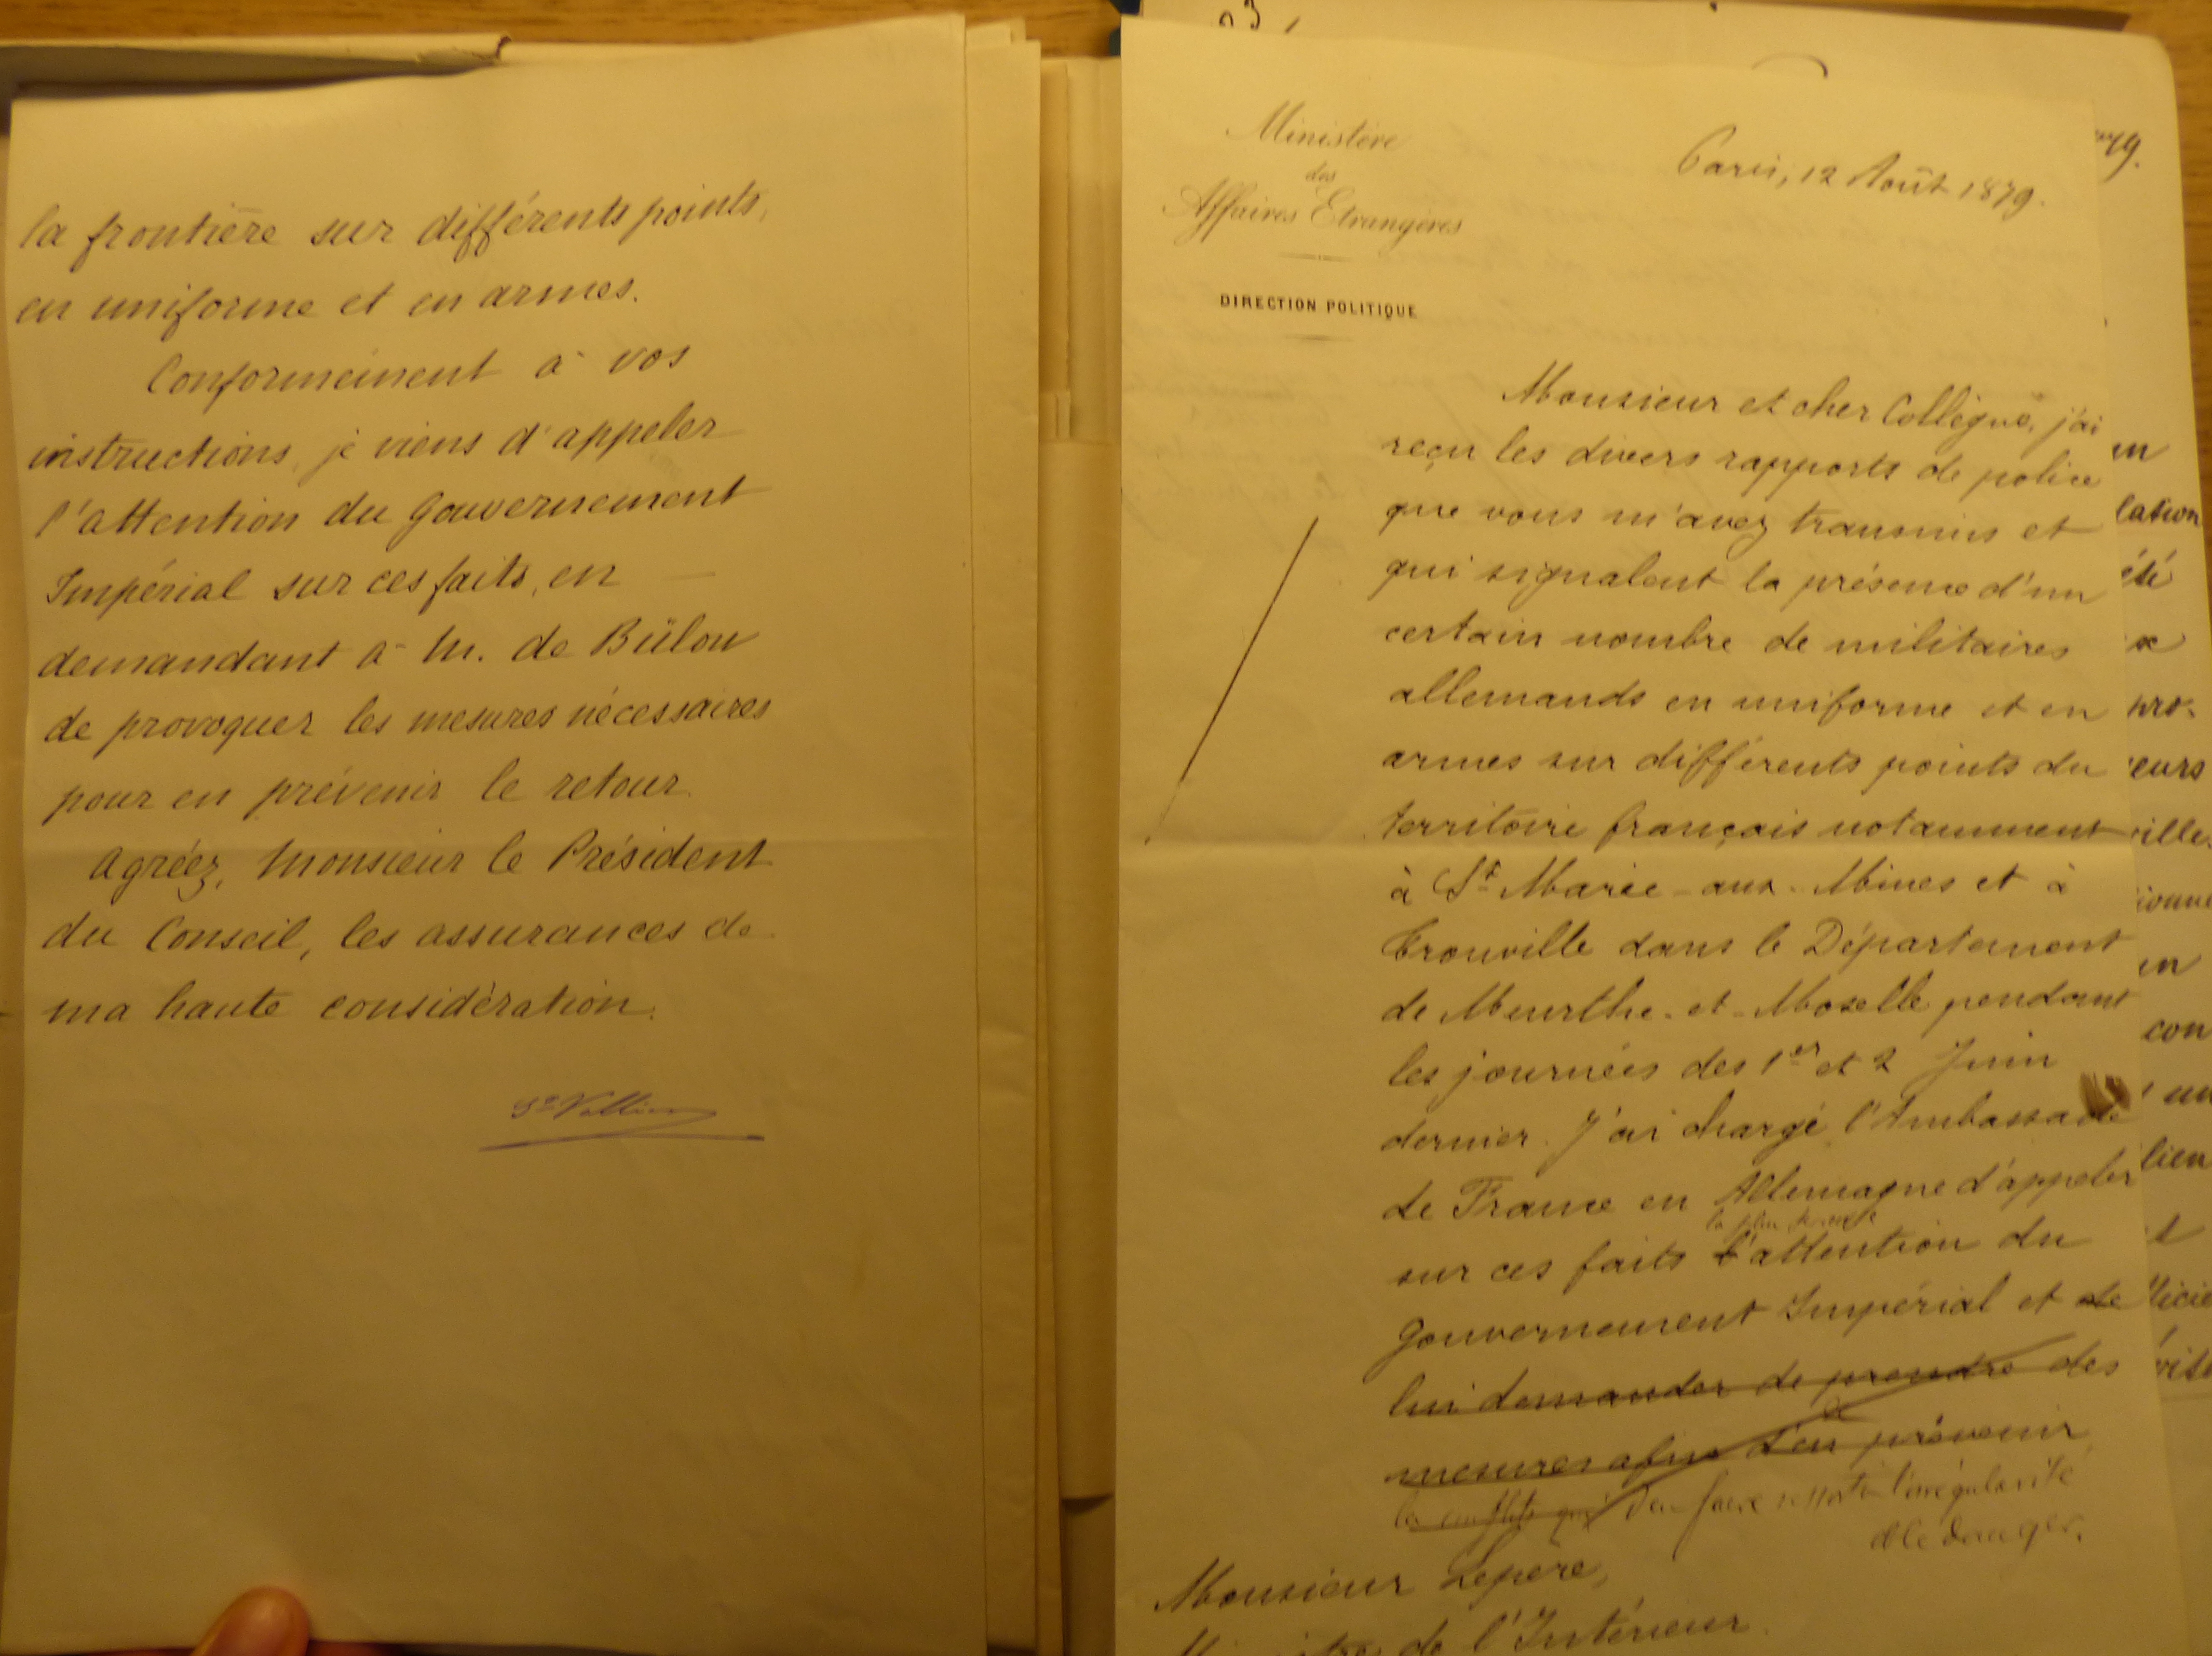 la frontière sur différents points,
en uniforme et en armes.
Conformément à vos
instructions, je viens d'appeler
l'attention du Gouvernement
Impérial sur ces faits, en
demandant à M. de Bülow
de provoquer les mesures nécessaires
pour en prévenir le retour.
Agréez, Monsieur le Président
du Conseil, les assurances de
ma haute considération.
St Vallier
Ministère
des
Affaires Etrangères
DIRECTION POLITIQUE
Paris, 12 Août 1879.
Monsieur et cher Collègue, j'ai
reçu les divers rapports de police
que vous m'avez transmis et
qui signalent la présence d'un
certain nombre de militaires
allemands en uniforme et en
armes sur différents points du
territoire français notamment
à Ste Marie-aux-Mines et à
dans le Département
de Meurthe-et-Moselle pendant
les journées des 1er et 2 Juin
dernier. J'ai chargé l'Ambassade
de France en Allemagne d'appeler
la plus sérieuse
sur ces faits l'attention du
Gouvernement Impérial et de
lui demander de prendre des
mesures afin d'en prévenir
les conflits qui d'en faire ressortir l'irrégularité
et le danger.
Monsieur Lepère,
de l'Intérieur
79.
en
lation
été
eurs
ville
en
con
un
lien